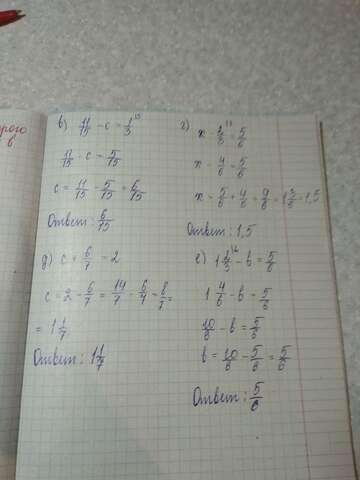 в) 11/15 - c = 1/3
11/15 - c = 5/15
c = 11/15 - 5/15 = 6/15
Ответ: 6/15
г) x - 2/3 = 5/6
x - 4/6 = 5/6
x = 5/6 + 4/6 = 9/6 = 1 3/6 = 1,5
Ответ: 1,5
д) c + 6/7 = 2
c = 2 - 6/7 = 14/7 - 6/7 = 8/7 =
= 1 1/7
Ответ: 1 1/7
е) 1 2/3 - b = 5/6
1 4/6 - b = 5/6
10/6 - b = 5/6
b = 10/6 - 5/6 = 5/6
Ответ: 5/6